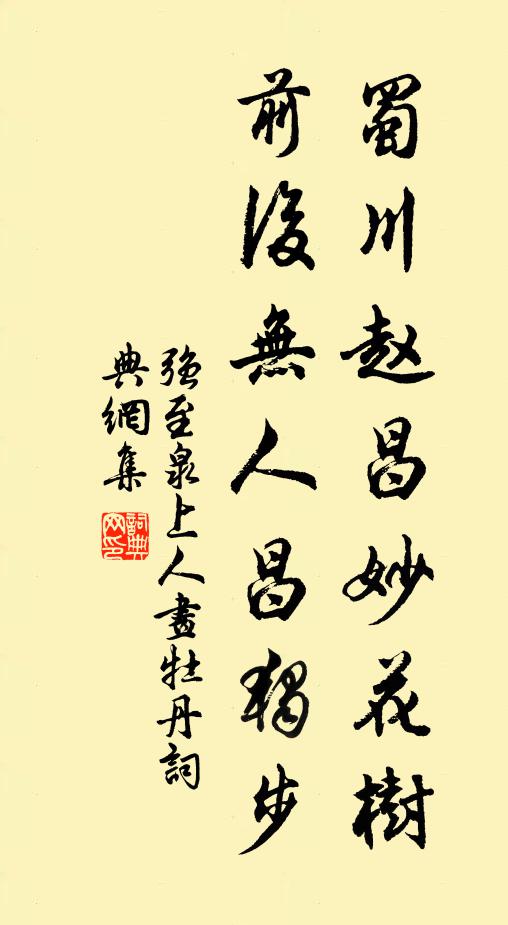 蜀川赵昌妙花樹
前後無人昌獨步
強至泉上人畫牡丹詞
典網集
詞典
网印